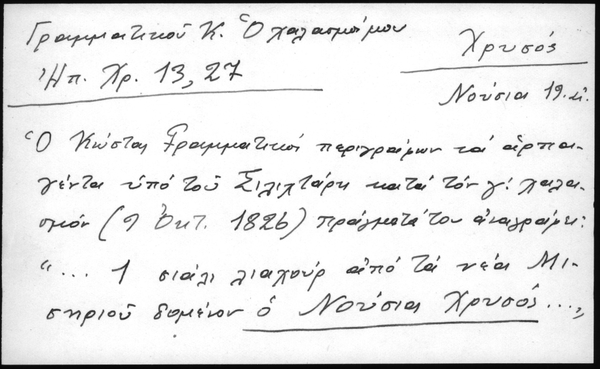 Γραμματικοῦ Κ. Ὁ χαλασμός μου
Ἠπ. Χρ. 13, 27
Χρυσός
Νούσια 19. αἰ.
Ὁ Κώστας Γραμματικός περιγράφων τά ἁρπα-
γέντα ὑπό τοῦ Σιλιχτάρη κατά τόν γ΄ χαλα-
σμόν (9 Ὀκτ. 1826) πράγματά του ἀναγράφει:
"... 1 σιάλι λιαχούρ ἀπό τά νέα Μι-
σηριοῦ δομένον ὁ Νούσια Χρυσός ...,,